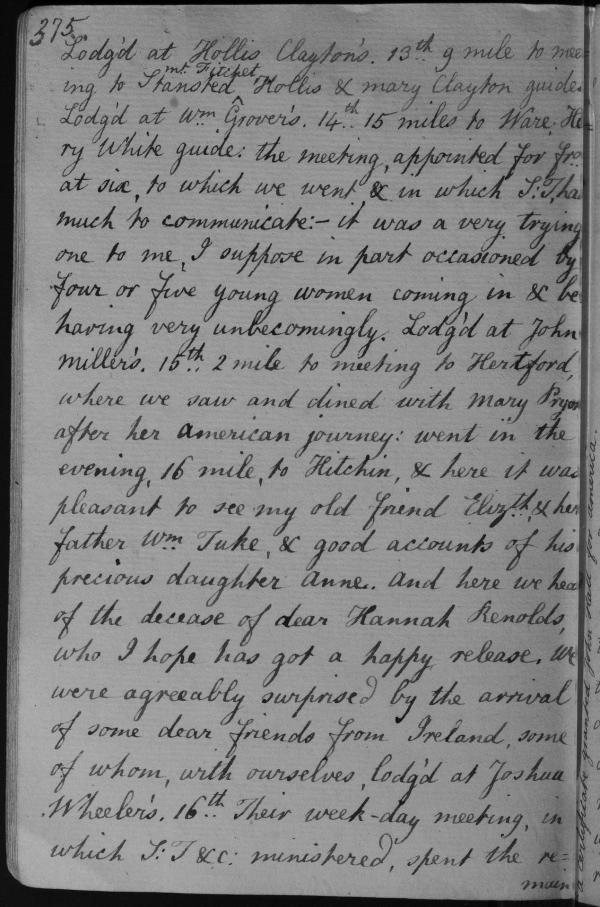 375
Lodg'd at Hollis Clayton's. 13th 9 mile to mee=
mt. Fitchet
ing to Stansted ^ Hollis & mary Clayton guide.
Lodg'd at Wm Grover's. 14th 15 miles to Ware. He
ry White guide: the meeting, appointed for frs
at six, to which we went, & in which S:T, ha
much to communicate:- it was a very trying
one to me, I suppose in part occasioned by
four or five young women coming in & be
having very unbecomingly. Lodg'd at John
Miller's. 15th 2 mile to meeting to Hertford,
where we saw and dined with Mary Pryor
after her american journey: went in the
evening, 16 mile, to Hitchin, & here it was
pleasant to see my old friend Elizth, & her
father Wm Tuke, & good accounts of his
precious daughter Anne. And here we hea
of the decease of dear Hannah Renolds,
who I hope has got a happy release. We
were agreeably surprised by the arrival
of some dear friends from Ireland, some
of whom, with ourselves, lodg'd at Joshua
Wheeler's. 16th Their week-day meeting, in
which S:T &c: ministered, spent the re=
main
a certificate granted John Hall for America.